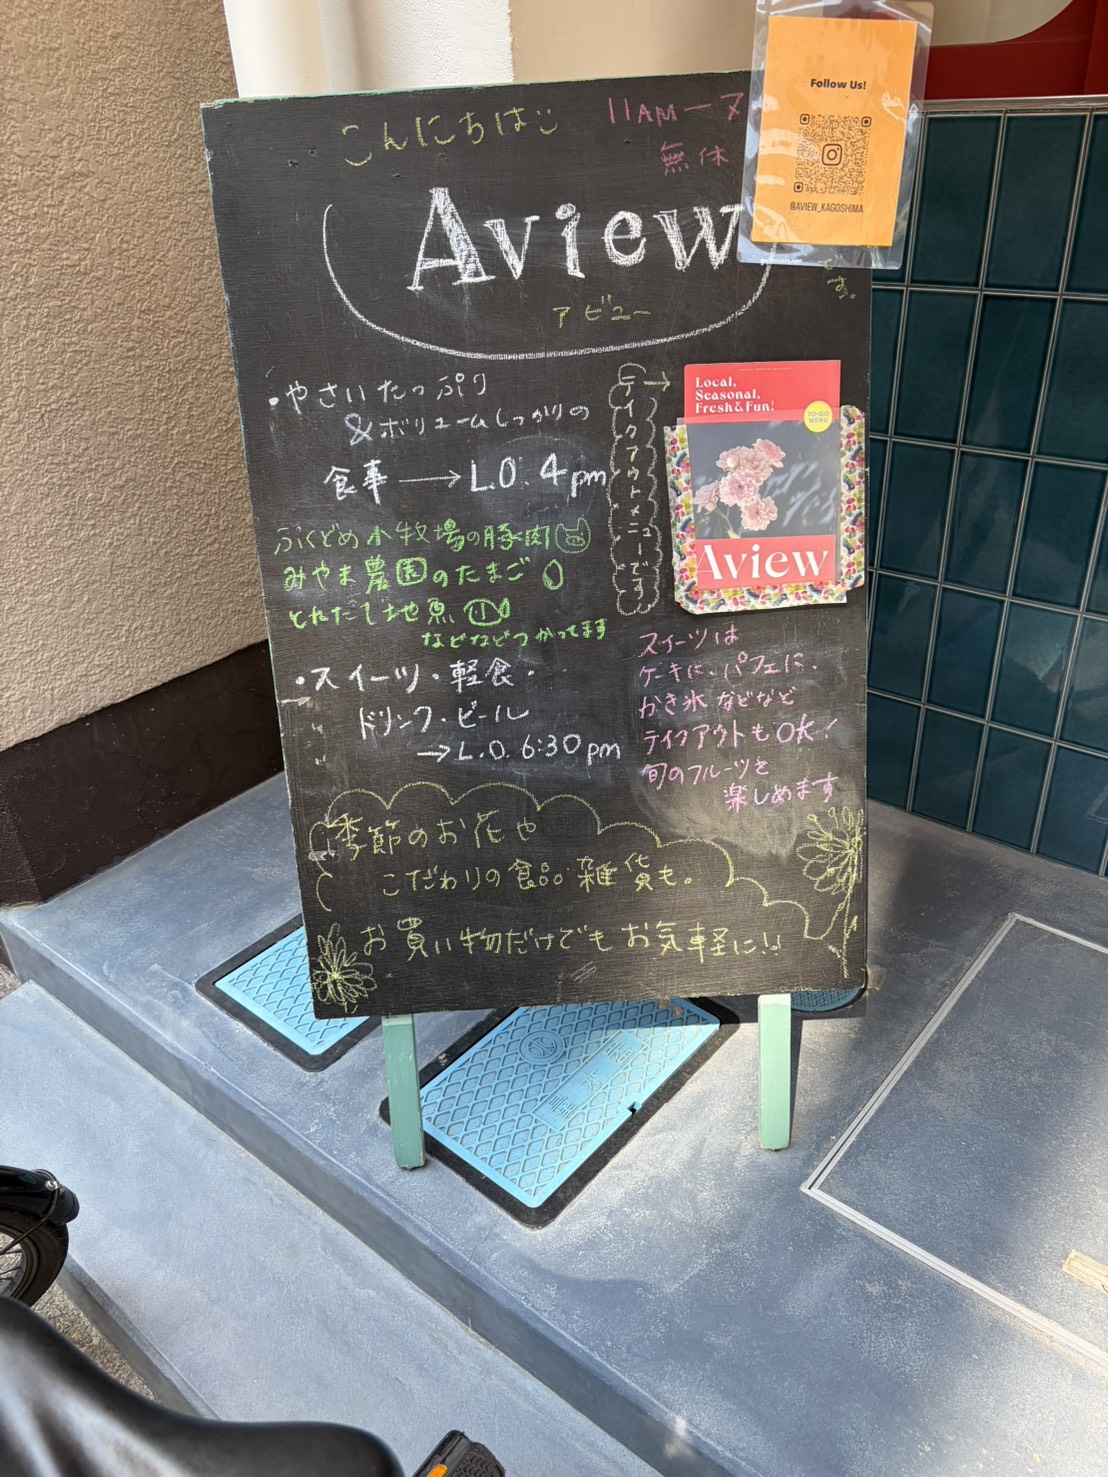 こんにちは
11AM－7
無休
Follow Us!
@AVIEW_KAGOSHIMA
Aview
アビュー
す。
・やさいたっぷり
&ボリュームしっかりの
食事→L.O.4pm
ふくどめ小牧場の豚肉
みやま農園のたまご
とれたて地魚
などなどつかってます
・スイーツ・軽食・
ドリンク・ビール
→L.O.6:30pm
テイクアウトメニューです→
Local,
Seasonal,
Fresh&Fun!
TO-GO
MENU
Aview
スイーツは
ケーキに、パフェに、
かき氷などなど
テイクアウトもOK!
旬のフルーツを
楽しめます
季節のお花や
こだわりの食品・雑貨も。
お買い物だけでもお気軽に!!